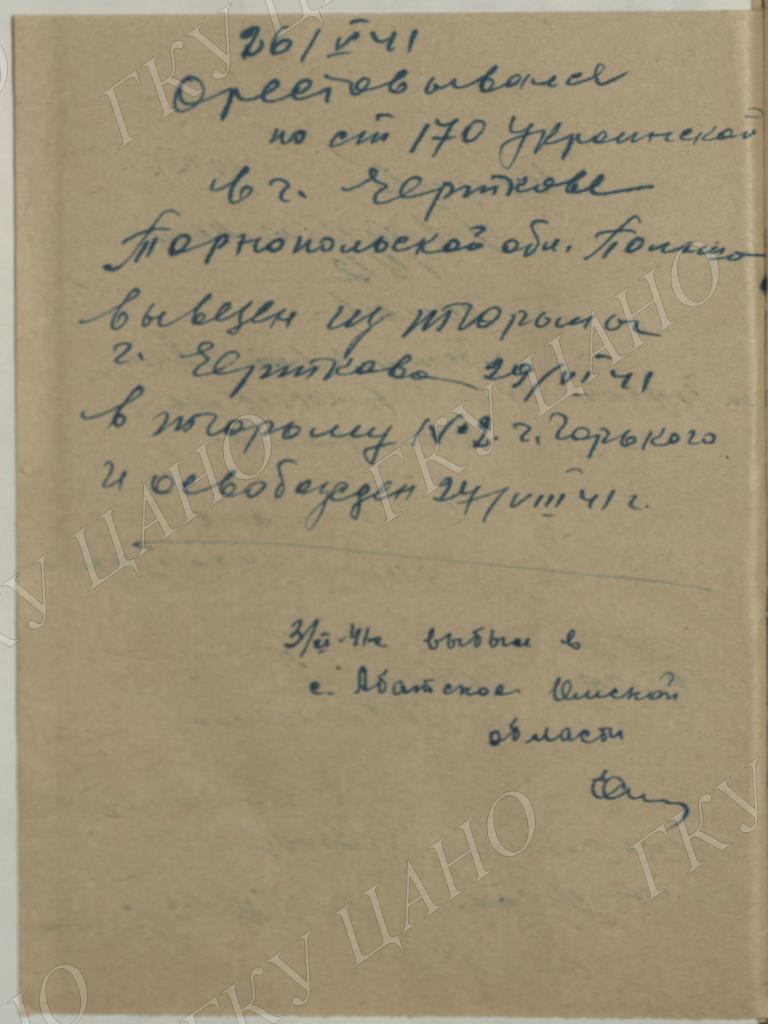 26/V 41
Орестовывался
по ст 170 Украинской
в г. Черткове
Тарнопольской обл. Польша
вывезен из тюрьмы
г. Черткова 29/VI 41
в тюрьму №2. г. Горького
и освобожден 27/VIII 41 г.
3/XI 41г выбыл в
с. Абатское Омской
области
ГКУ ЦАНО
ГКУ ЦАНО
ГКУ ЦАНО
ГКУ ЦАНО
ГКУ ЦАНО